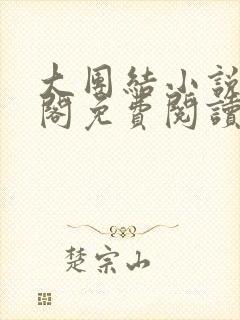 大團結小說
閣免費閱讀
楚宗山